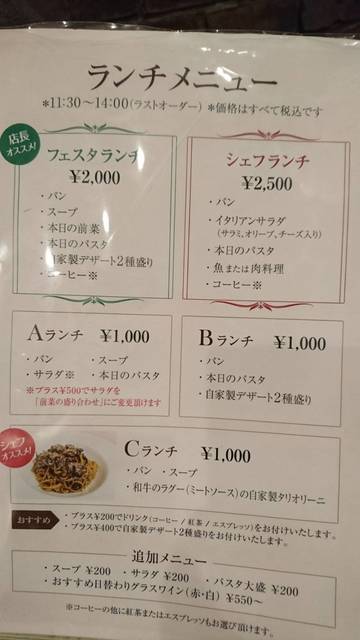 ランチメニュー
*11:30～14:00(ラストオーダー) *価格はすべて税込です
店長
オススメ!
フェスタランチ
¥2,000
・パン
・スープ
・本日の前菜
・本日のパスタ
・自家製デザート2種盛り
・コーヒー※
シェフランチ
¥2,500
・パン
・イタリアンサラダ
(サラミ、オリーブ、チーズ入り)
・本日のパスタ
・魚または肉料理
・コーヒー※
Aランチ ¥1,000
・パン ・スープ
・サラダ※ ・本日のパスタ
※プラス¥500でサラダを
「前菜の盛り合わせ」にご変更頂けます
Bランチ ¥1,000
・パン
・本日のパスタ
・自家製デザート2種盛り
シェフ
オススメ!
Cランチ ¥1,000
・パン ・スープ
・和牛のラグー(ミートソース)の自家製タリオリーニ
おすすめ
・プラス¥200でドリンク(コーヒー / 紅茶 / エスプレッソ)をお付けいたします。
・プラス¥400で自家製デザート2種盛りをお付けいたします。
追加メニュー
・スープ ¥200 ・サラダ ¥200 ・パスタ大盛 ¥200
・おすすめ日替わりグラスワイン(赤・白) ¥550～
※コーヒーの他に紅茶またはエスプレッソもお選び頂けます。